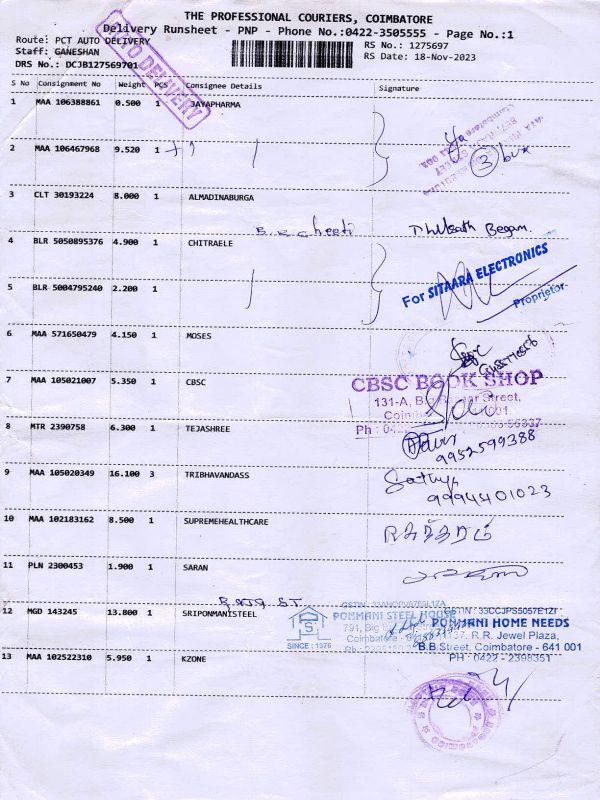 THE PROFESSIONAL COURIERS, COIMBATORE
Delivery Runsheet - PNP - Phone No.:0422-3505555 - Page No.:1
Route: PCT AUTO DELIVERY
RS No.: 1275697
Staff: GANESHAN
RS Date: 18-Nov-2023
DRS No.: DCJB127569701
AUTO DELIVERY
S No Consignment No Weight PCS Consignee Details Signature
1 MAA 106388861 0.500 1 JAYAPHARMA
2 MAA 106467968 9.520 1
3 box
3 CLT 30193224 8.000 1 ALMADINABURGA
Begam.
4 BLR 5050895376 4.900 1 CHITRAELE
For SITAARA ELECTRONICS
Proprietor
5 BLR 5004795240 2.200 1
6 MAA 571650479 4.150 1 MOSES
7 MAA 105021007 5.350 1 CBSC
CBSC BOOK SHOP
131-A, Street,
8 MTR 2390758 6.300 1 TEJASHREE
9952599388
9 MAA 105020349 16.100 3 TRIBHAVANDASS
Sathya
9994401023
10 MAA 102183162 8.500 1 SUPREMEHEALTHCARE
11 PLN 2300453 1.900 1 SARAN
RAJA ST
12 MGD 143245 13.800 1 SRIPONMANISTEEL
PONMANI STEEL HOUSE
SINCE : 1976
GSTIN : 33CCJPS5057E1ZI
PONMANI HOME NEEDS
137, R.R. Jewel Plaza,
B.B.Street, Coimbatore - 641 001
PH : 0422 - 2398351
13 MAA 102522310 5.950 1 KZONE